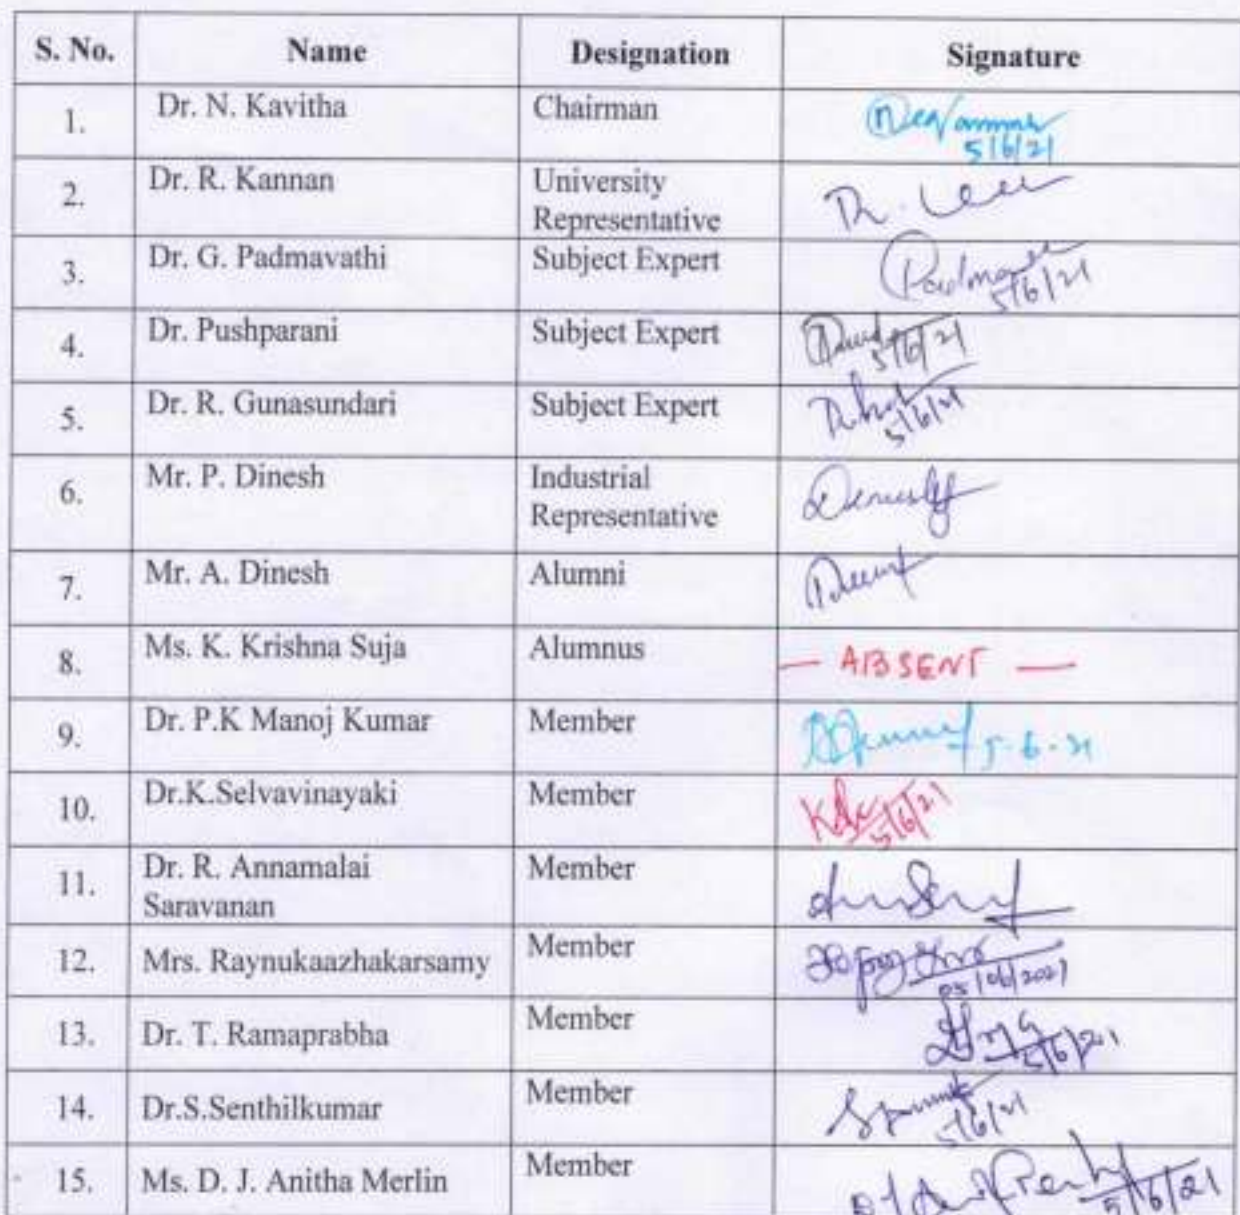 S. No. Name Designation Signature
1. Dr. N. Kavitha Chairman
5/6/21
2. Dr. R. Kannan University
Representative
3. Dr. G. Padmavathi Subject Expert
5/6/21
4. Dr. Pushparani Subject Expert
5/6/21
5. Dr. R. Gunasundari Subject Expert
5/6/21
6. Mr. P. Dinesh Industrial
Representative
7. Mr. A. Dinesh Alumni
8. Ms. K. Krishna Suja Alumnus — ABSENT —
9. Dr. P.K Manoj Kumar Member 5-6-21
10. Dr.K.Selvavinayaki Member
5/6/21
11. Dr. R. Annamalai Member
Saravanan
12. Mrs. Raynukaazhakarsamy Member
05/06/2021
13. Dr. T. Ramaprabha Member
5/6/21
14. Dr.S.Senthilkumar Member
5/6/21
15. Ms. D. J. Anitha Merlin Member
5/6/21